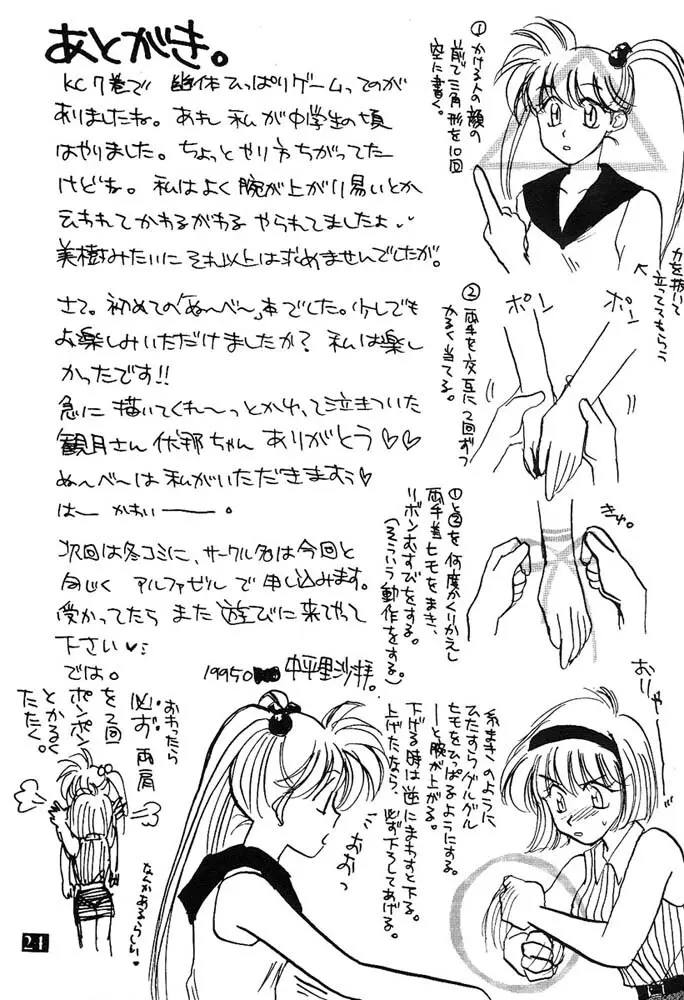 あとがき。
KC7巻で 幽体ひっぱりゲームってのが
ありましたね。あれ 私が中学生の頃
はやりました。ちょっとやり方ちがってた
けどね。私はよく腕が上がり易いとか
云われてかわるがわる やられてましたよ
美樹みたいにそれ以上は求めませんでしたが。
さて。初めての「ぬ〜べ〜」本でした。少しでも
お楽しみいただけましたか?私は楽し
かったです!!
急に 描いてくれ〜っとかゆって泣きついた
観月さん 伊那ちゃん ありがとう♡♡
ぬ〜べ〜は私がいただきますぅ♡
は― かわい―――。
次回は冬コミに、サークル名は今回と
同じく アルファゼルで申し込みます。
受かってたら また 遊びに来てやって
下さい♡
では。
19950 中平里沙
① かける人の顔の
前で三角形を10回
空に書く。
力を抜いて
立っててもらう
② 両手を交互に2回ずつ
かるく当てる。
ポン
ポン
①と②を何度かくりかえし
両手首ヒモをまき、
リボンむすびをする。
(そういう動作をする。)
きゅ。
おりゃー
糸まきのように
ひたすらグルグル
ヒモをひっぱるようにする。
―と腕が上がる。
下げる時は逆にまわすと下がる。
上げたなら、必ず下ろしてあげる。
おおっ
おわったら
必ず両肩
を2回
ポンポン
とかるく
たたく。
なんかあるらしい
21